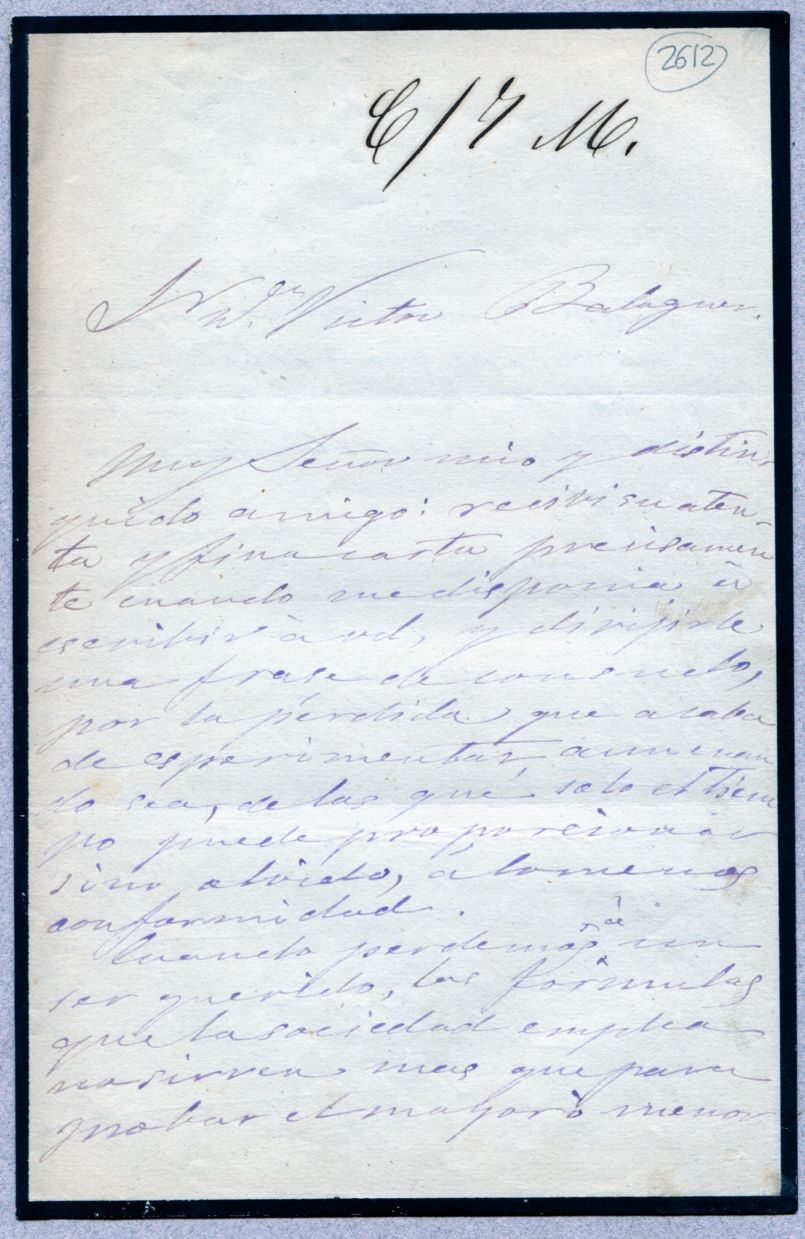 2612
C/7 M.
Sr. Dn. Victor Balaguer.
Muy Señor mio y distin-
guido amigo: recivi su aten-
ta y fina carta precisamen
te cuando me disponia à
escribir à vd, y dirijirle
una frase de consuelo,
por la pérdida que acaba
de esperimentar, aun cuan
do sea, de las que solo el tiem
po puede proporcionar
sino olvido, á lo menos
conformidad.
Cuando perdemos à un
ser querido, las fórmulas
que la sociedad emplea
no sirven mas que para
probar el mayor ò menor